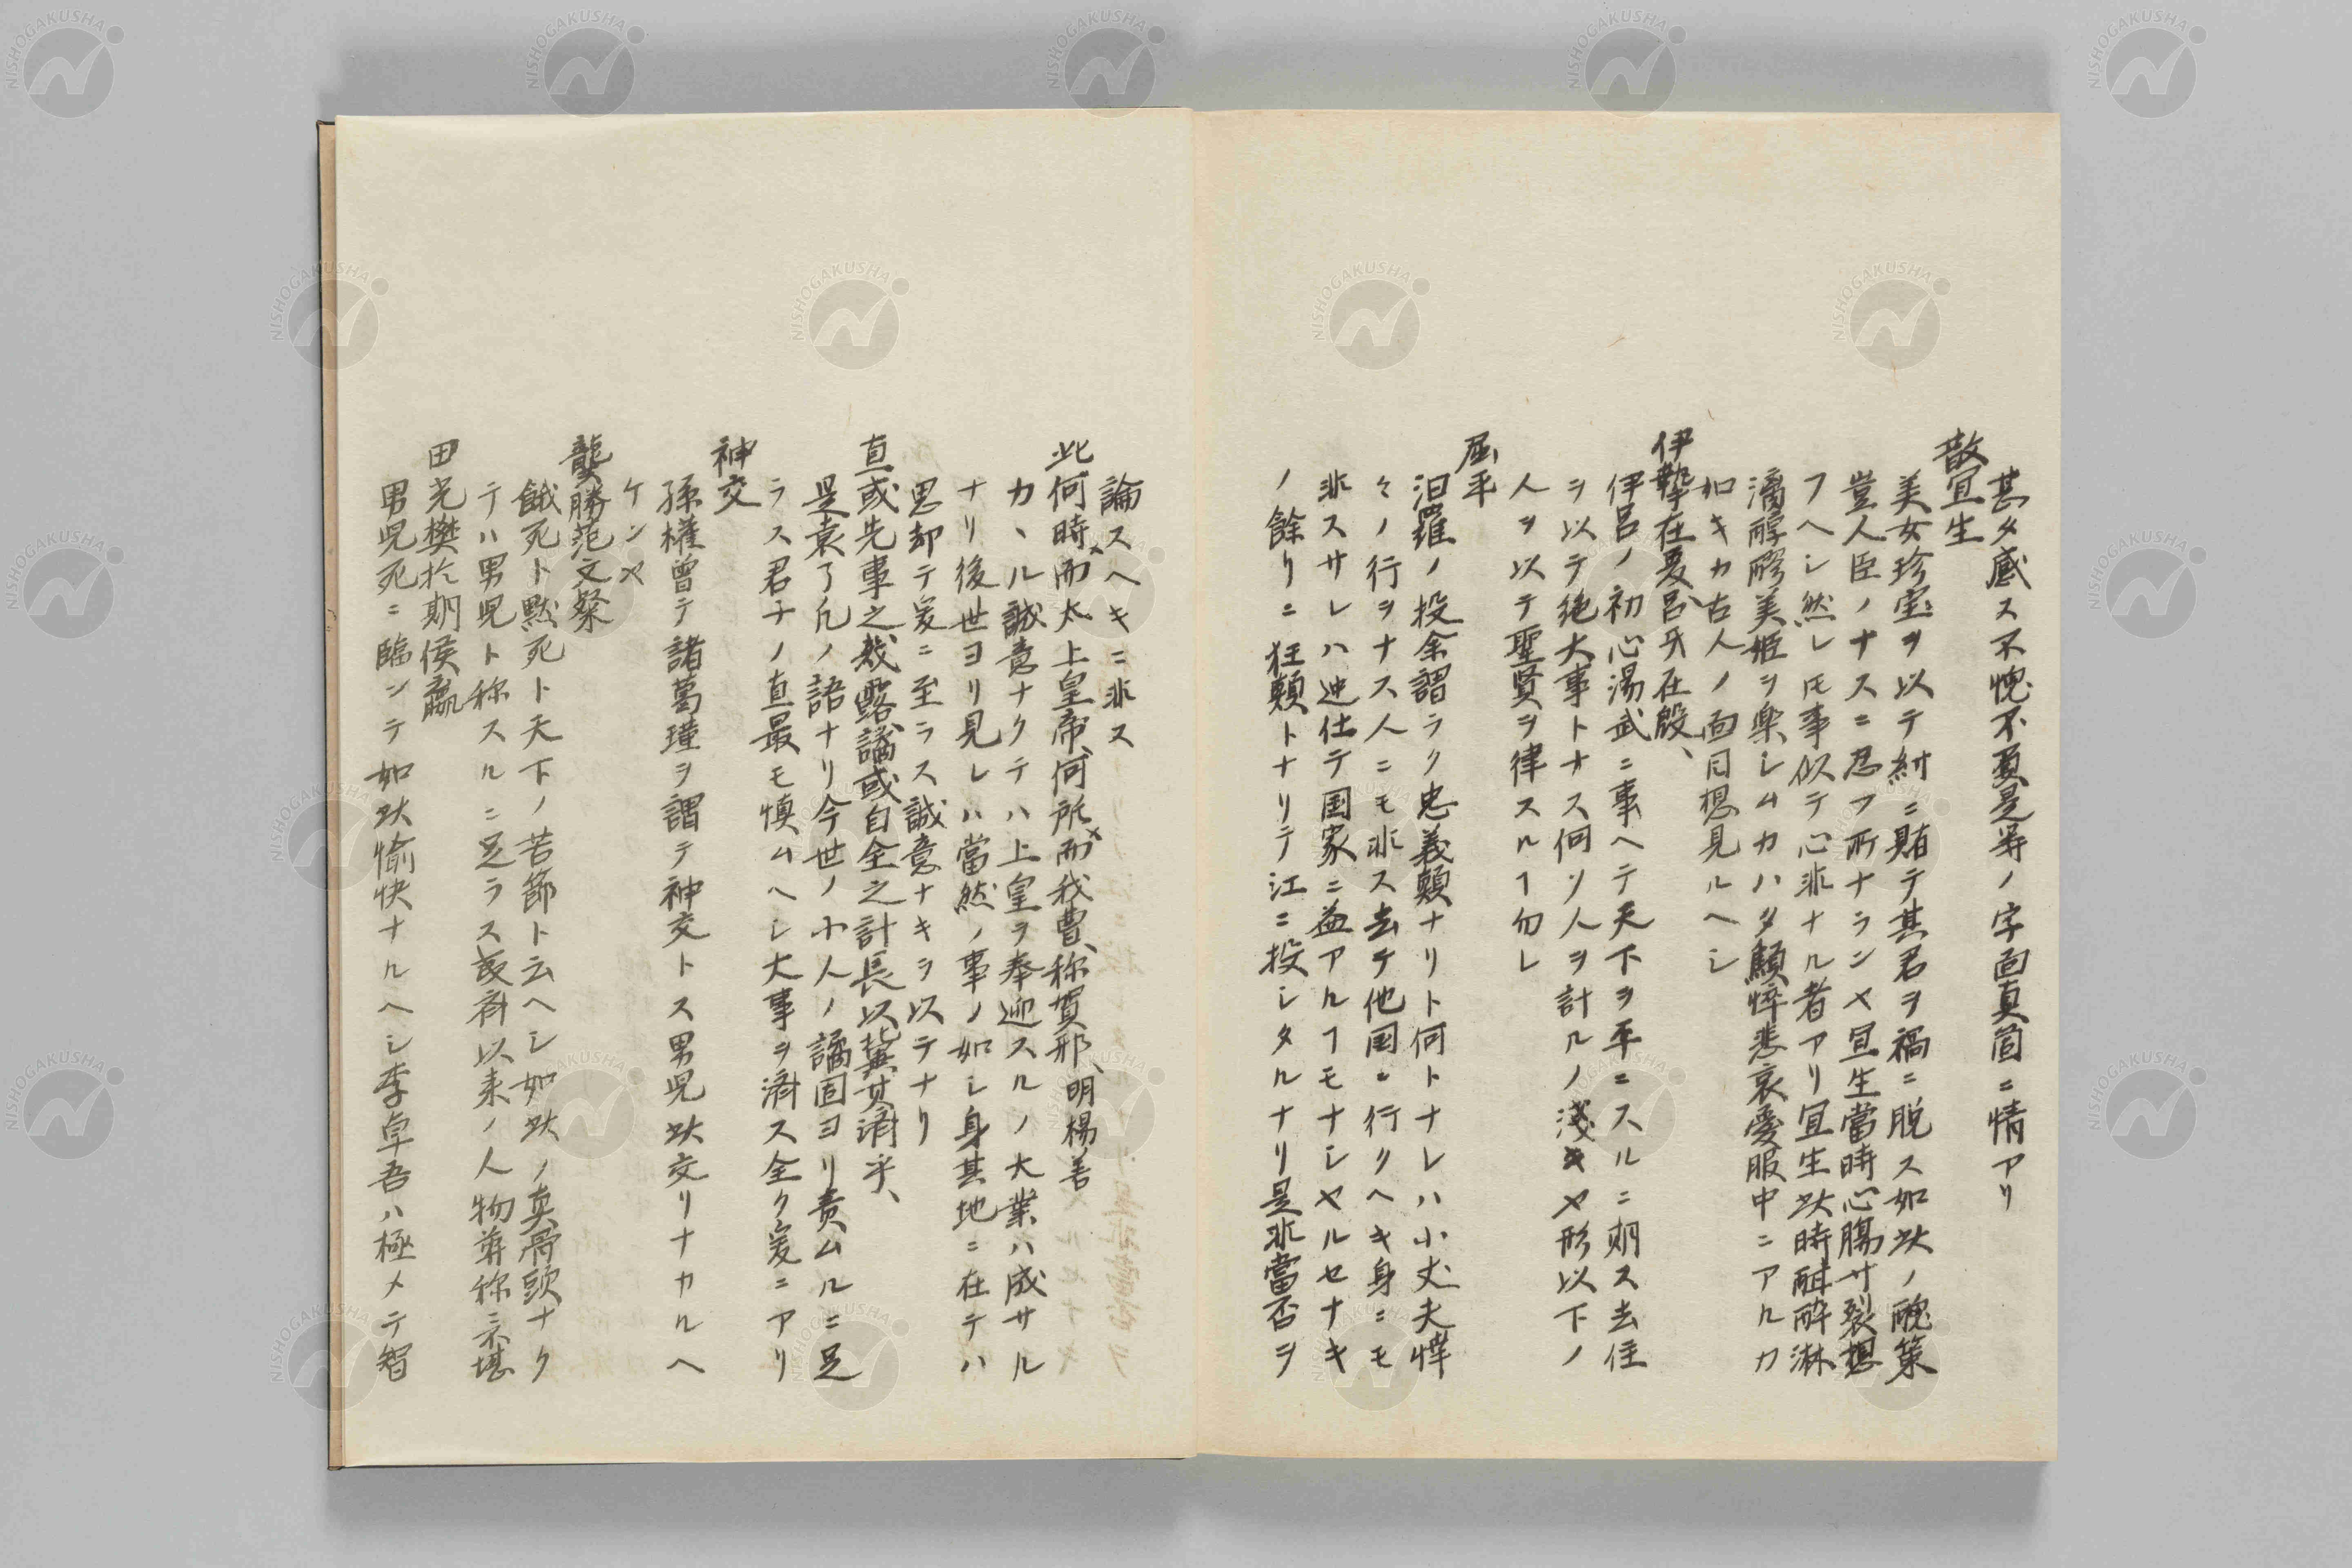 甚タ感ス不愧不負是等ノ字面真箇ニ情アリ
散宜生
美女珍宝ヲ以テ紂ニ賂テ其君ヲ禍ニ脱ス如此ノ醜策
豈人臣ノナスニ忍フ所ナランヤ宜生當時心腸寸裂想
フヘシ然レ𪜈事似テ心非ナル者アリ宜生此時酣酔淋
漓醇醪美姫ヲ楽シムカハタ顦悴悲哀憂服中ニアルカ
如キカ古人ノ面目想見ルヘシ
伊摯在夏呂牙在殷、
伊呂ノ初心湯武ニ事ヘテ天下ヲ平ニスルニ期ス去住
ヲ以テ絶大事トナス何ソ人ヲ計ルノ淺キヤ形以下ノ
人ヲ以テ聖賢ヲ律スルヿ勿レ
屈平
汨羅ノ投余謂ラク忠義頼ナリト何トナレハ小丈夫悻
々ノ行ヲナス人ニモ非ス去テ他国ニ行クヘキ身ニモ
非スサレハ迚仕テ国家ニ益アルヿモナシヤルセナキ
ノ餘リニ狂頼トナリテ江ニ投シタルナリ是非當否ヲ
論スヘキニ非ス
此何時而太上皇帝、何所而我曹、称賀邪、明楊善
カヽル誠意ナクテハ上皇ヲ奉迎スルノ大業ハ成サル
ナリ後世ヨリ見レハ當然ノ事ノ如シ身其地ニ在テハ
思却テ爰ニ至ラス誠意ナキヲ以テナリ
直或先事之裁露、譎或自全之計長以冀其済乎、
是袁了凡ノ語ナリ今世ノ小人ノ譎固ヨリ責ムルニ足
ラス君子ノ直最モ慎ムヘシ大事ヲ済ス全ク爰ニアリ
神交
孫權曾テ諸葛瑾ヲ謂テ神交トス男児此交リナカルヘ
ケンヤ
龔勝范文粲
餓死ト黙死ト天下ノ苦節ト云ヘシ如此ノ真骨頭ナク
テハ男児ト称スルニ足ラス叔斉以来ノ人物并称ニ堪
田光樊於期侯嬴
男児死ニ臨ンテ如此愉快ナルヘシ李卓吾ハ極メテ智